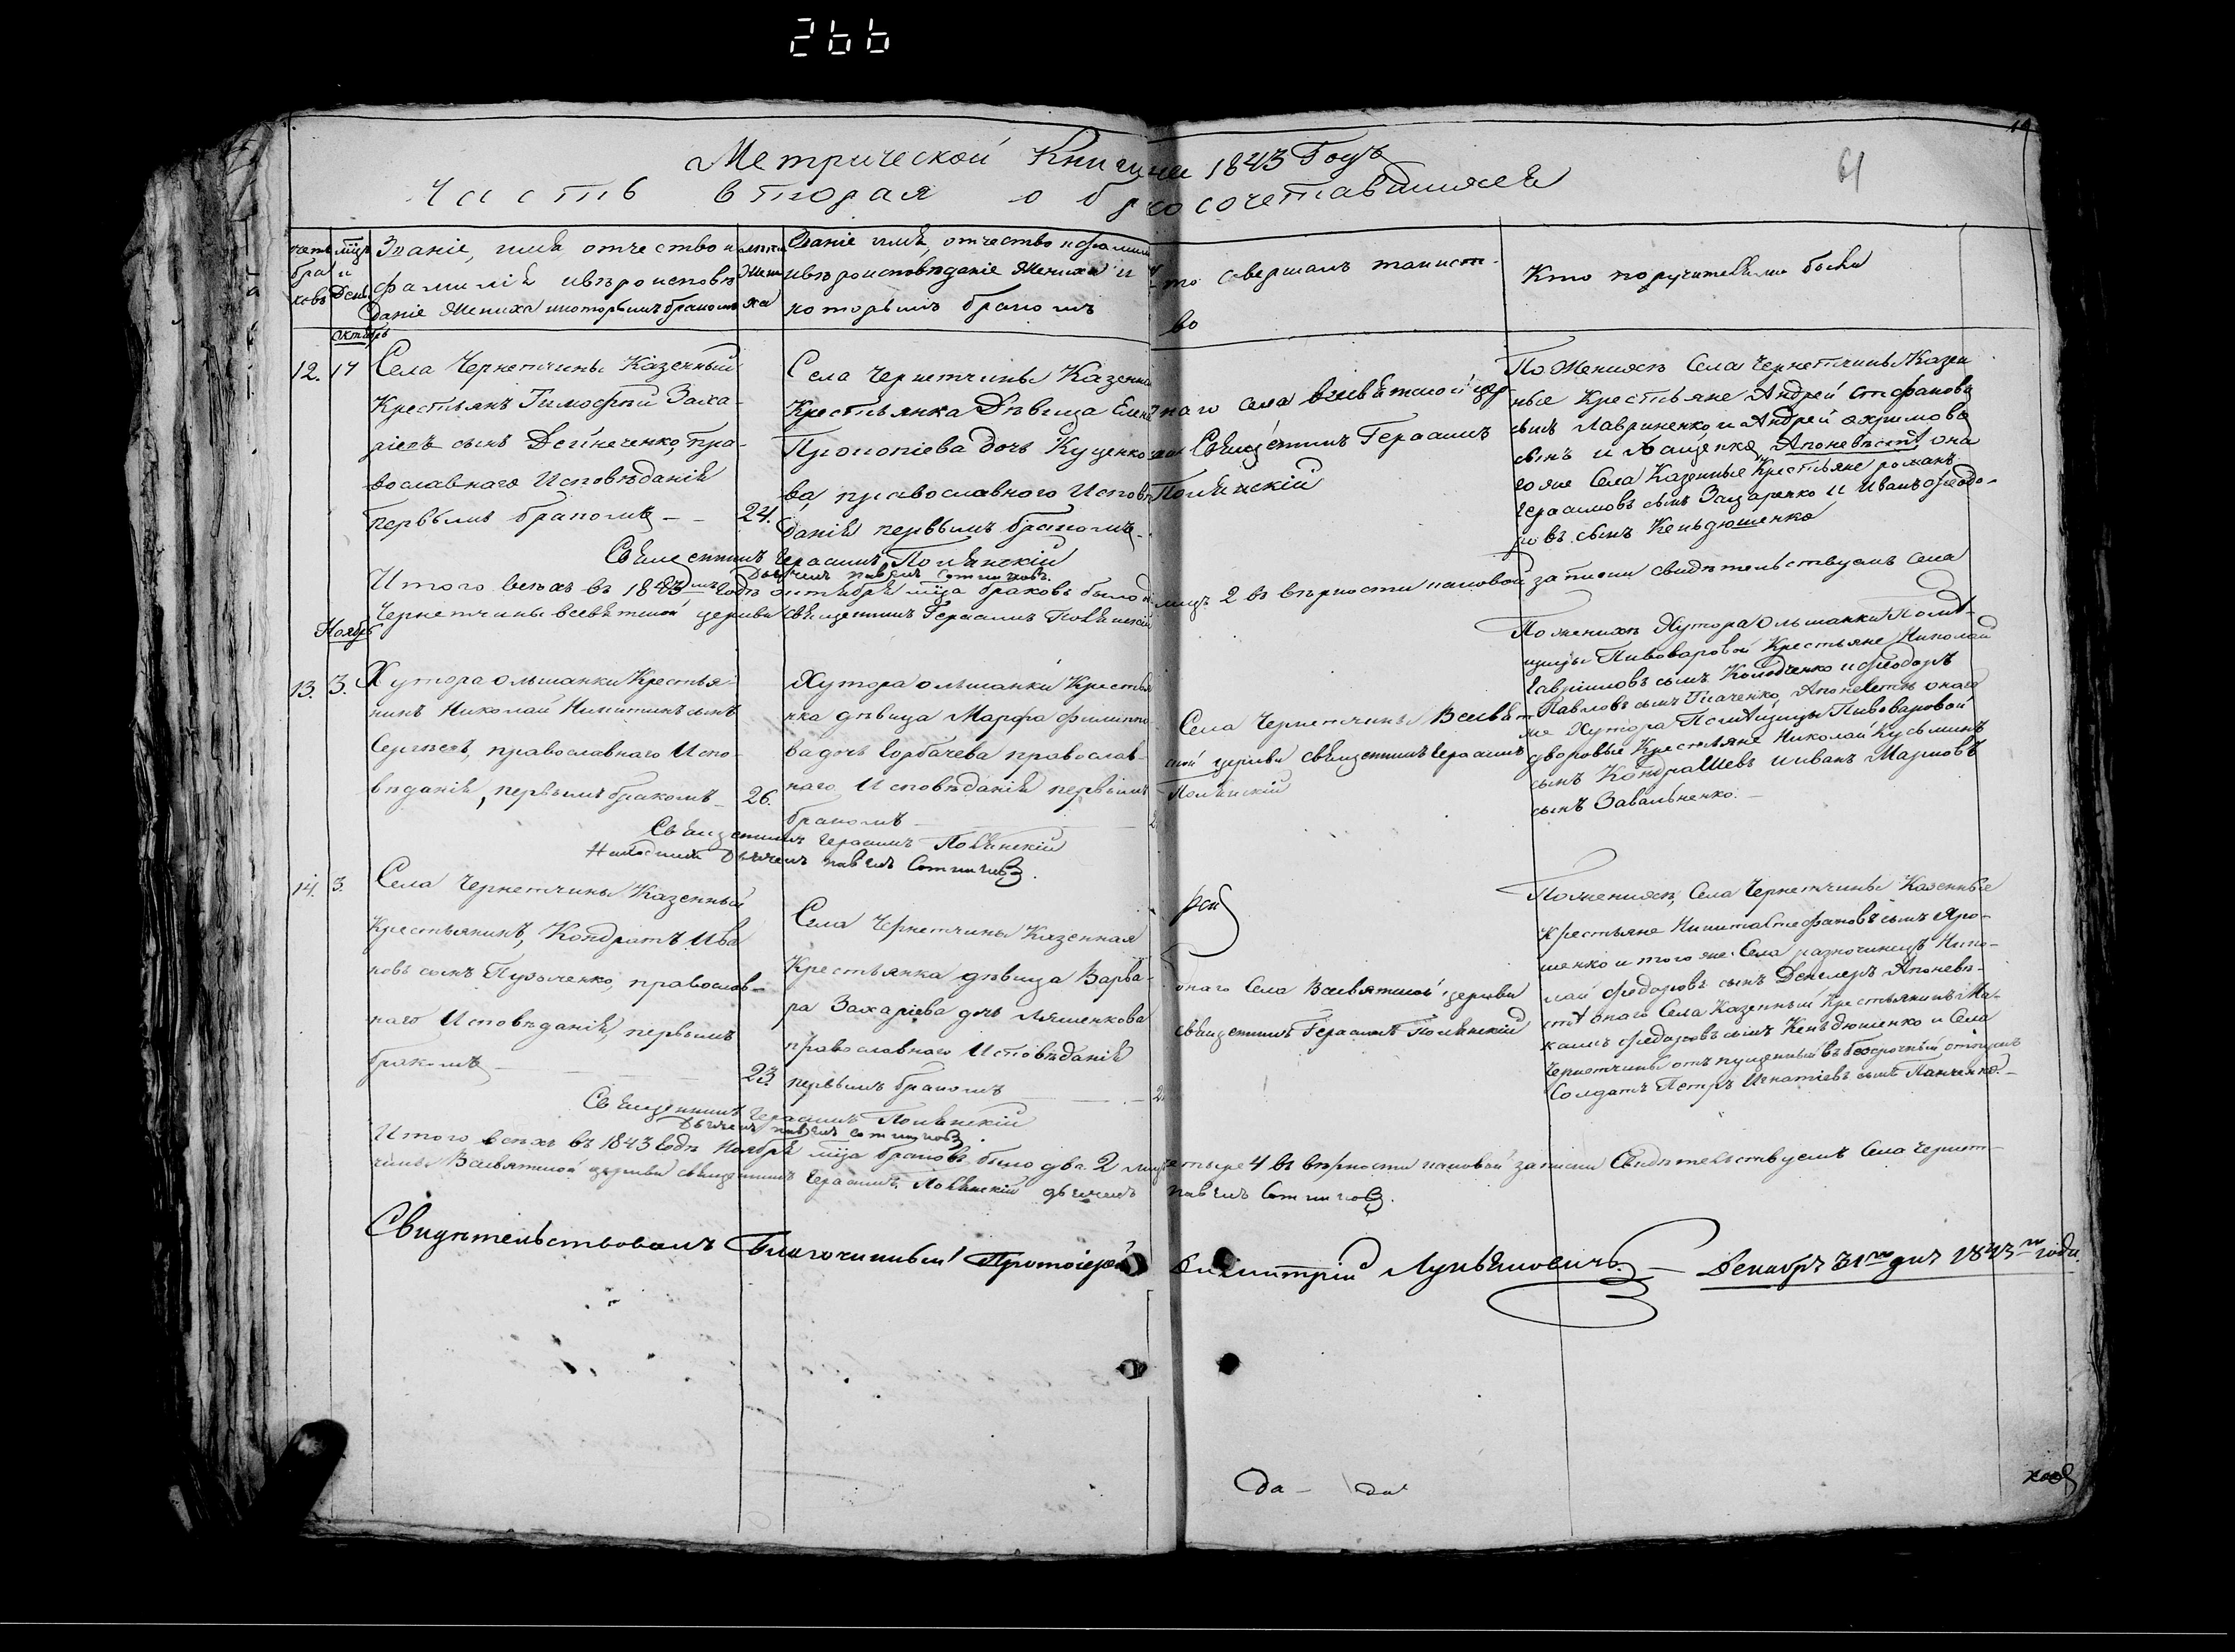 266
61
Метрической Книги на 1843 Годъ
Часть вторая о бракосочетавшихся
Счетъ браковъ
Мцъ и День
Званіе, имя, отчество и
фамилія и вѣроисповѣ
даніе Жениха и которымъ бракомъ
лѣта Жениха
Званіе имя, отчество и фамилія
и вѣроисповѣданіе Жениха и
которымъ бракомъ
Кто совершалъ таинст-
во
Кто поручителями были
Октябрь
12. 17
Села Чернетчины Казенный
Крестьянъ Тимофѣй Заха-
ріевъ сынъ Дейнеченко, пра-
вославнаго Исповѣданія
первымъ бракомъ - - 24.
Села Чернетчины Казенна
Крестьянка Дѣвица Елена
Прокопіева дочь Куценко
ва, православного Исповѣ
данія первымъ бракомъ
наго села Всесвятской цер
Священникъ Герасимъ
Полянскій
По Женихѣ Села Чернетчины Казен
ные Крестьяне Андрей Стефановъ
сынъ Лавриненко и Андрей Охримовъ
сынъ Ищенко, А по невѣстѣ она
го же Села Казенные Крестьяне романъ
Герасимовъ сынъ Захаренко и Иванъ Федо-
ровъ сынъ Кендюшенко
Священникъ Герасимъ Полянскій
Дьячекъ павелъ Сотниковъ
Итого всѣхъ въ 1843мъ Годѣ октябрѣ мца браковъ было
лицъ 2 въ вѣрности каковой записи свидѣтельствуемъ Села
Чернетчины всесвятской церкви Священникъ Герасимъ Полянскій
Ноябрь
13. 3.
Хутора ольшанки Крестья-
нинъ Николай Никитинъ сынъ
Сергѣевъ, православнаго Испо-
вѣданія, первымъ бракомъ - 26.
Хутора ольшанки Крестья
нка дѣвица Марфа филиппо
ва дочь Горбачева православ-
наго Исповѣданія первымъ
бракомъ
Села Чернетчины Всесвят
ской церкви священникъ Герасимъ
Полянскій
По женихѣ Хутора Ольшанки Помѣ-
щицы Пивоваровой Крестьяне Николай
Гавриловъ сынъ Колодченко и Феодоръ
Павловъ сынъ Ткаченко, А по невѣстѣ онаго
же Хутора Помѣщицы Пивоваровой
дворовые Крестьяне Николай Кузьминъ
сынъ Кондрашевъ и иванъ Марковъ
сынъ Завальненко.
Священникъ Герасимъ Полянскій
Дьячекъ павелъ Сотниковъ.
14. 3.
Села Чернетчины Казенный
Крестьянинъ, Кондратъ Ива
новъ сынъ Пузыченко, православ-
наго Исповѣданія, первымъ
бракомъ - 23.
Села Чернетчины Казенная
Крестьянка дѣвица Варва-
ра Захаріева дочь Ляшенкова
православнаго Исповѣданія
первымъ бракомъ
онаго Села Всесвятской церкви
священникъ Герасимъ Полянскій
По женихѣ, Села Чернетчины Казенные
Крестьяне Никита Стефановъ сынъ Яро-
шенко и того же Села разночинецъ Нико-
лай Федоровъ сынъ А по невѣ-
стѣ онаго Села Казенный Крестьянинъ Ма-
каилъ Федоровъ сынъ Кендюшенко и Села
Чернетчины отпущенный въ безсрочный отпускъ
Солдатъ Петръ Игнатіевъ сынъ Панченко. -
Священникъ Герасимъ Полянскій
Дьячекъ павелъ Сотниковъ.
Итого всѣхъ въ 1843 Годѣ Ноябрѣ мца браковъ было два 2 лицъ
четыре 4 въ вѣрности каковой записи Свидѣтельствуемъ Села Чернет-
чины Всесвятской церкви священникъ Герасимъ Полянскій дьячекъ
павелъ Сотниковъ.
Свидѣтельствовалъ Благочинный Протоіерей
Димитрій Лукьяновичъ. - Декабря 31го дня 1843го года.
да - да